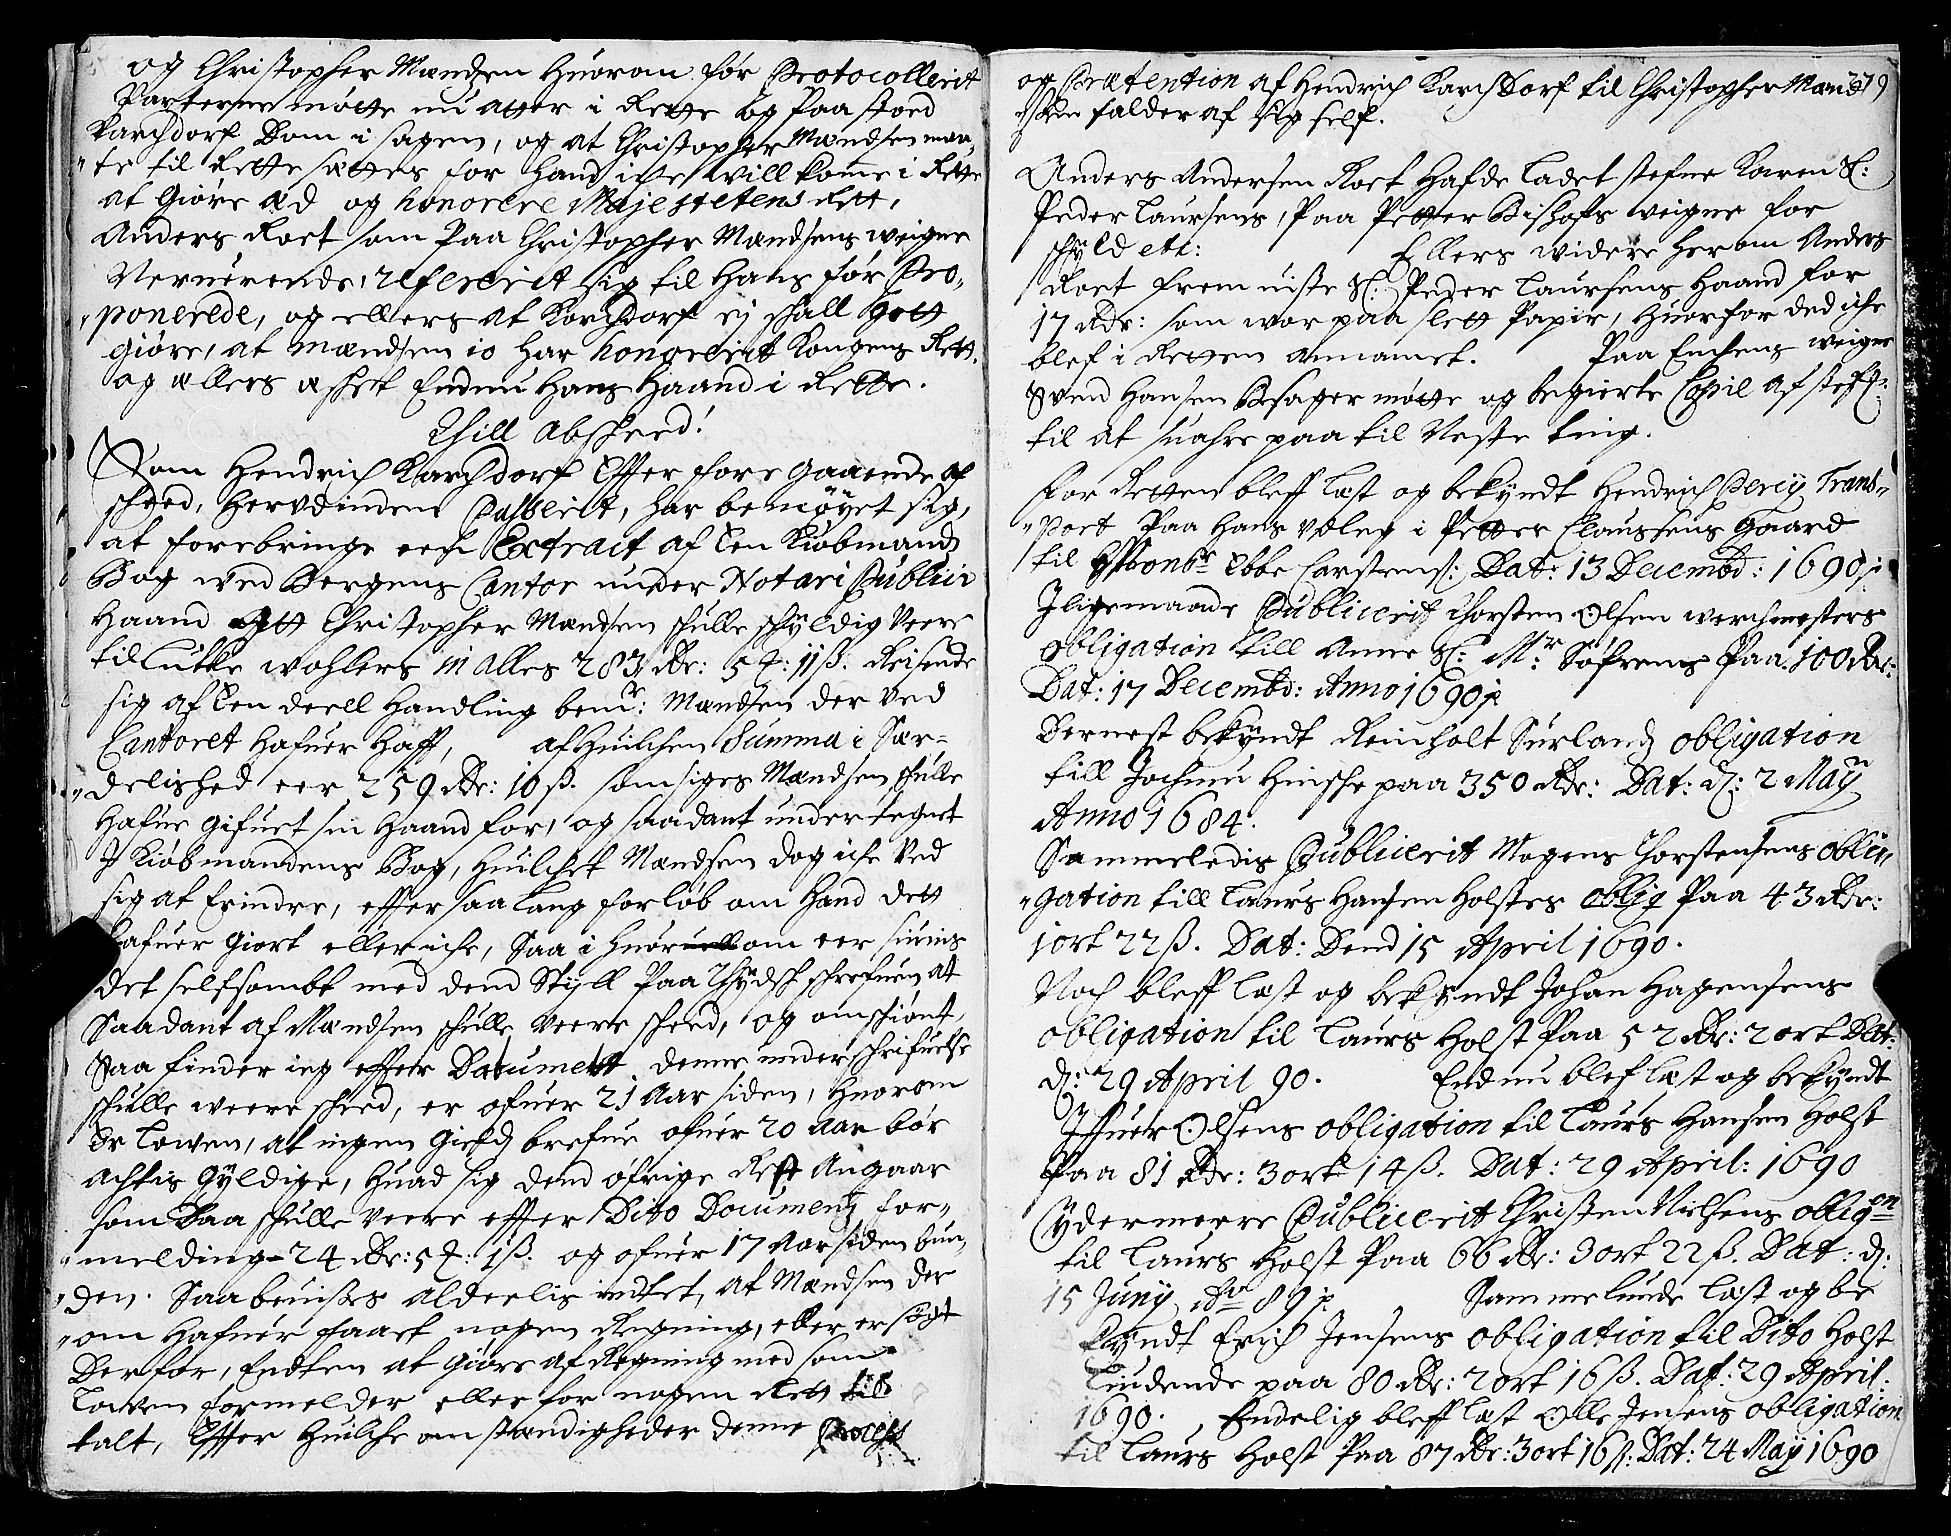 og Christopher Mandsen Huorom før Protocollerit
Parterne møtte nu atter i Rette og Paa stoed
Karchdorf Dom i sagen, og at Christopher Mandsen maa„
„te til Rette sættes for Hand iche will kome i Rette
at Giøre æd og honorere Majestetens Rett,
Anders Roet som Paa Christopher Mandsens weigne
Vernerende, refererit sig til Hans før Pro„
„ponerede, og ellers at Karchdorf ej schall gott
Giøre, at Mandsen io har honorerit Kongens Rett.
og ellers æschet Endnu Hans Haand i Rette.
Thill Abscheed!
Som Hendrich Karchdorf Effter fore Gaaende af
scheed, Hervdinden Passerit, har bemøyet sig,
at forebringe eet Extract af Een Kiøbmandz
Bog wed Bergens Cantor under Notari Publici
Haand att Christopher Mandsen schulle schyldig Veere
til Lutke wohlers in alles 283 Rdr: 5 #: 11 ß. Reisende
sig af Een deell Handling bemr: Mandsen der ved
Cantoret Hafuer Hafft, af Huilchen Summa i Sær„
„delished eer 259 Rdr: 10 ß. som siges Mandsen schulle
Hafue Gifuet sin Haand for, og saadant under tegnet
I Kiøbmandens Bog, Huilchet Mandsen dog iche Ved
sig at Erindre, effter saa lang forløb om Hand dett
Hafuer Giort eller iche, Saa i Huorom eer siuns
det selfsambt med dend Styll Paa Thydsch schrefuen at
Saadant af Mandsen schulle veere scheed, og omschiønt
Saa finder ieg effter Datumett denne underschrifuelse
schulle weere scheed, er ofuer 21 Aar siden, Huorom
Er Lowen, at ingen Gieldz brefue ofuer 20 Aar bør
achtis Gyldige, Huad sig dend øfrige Rest Angaar
som Daa schulle veere effter Dito Documentz for„
„melding 24 Rdr: 5 #: 1 ß. og ofuer 17 Aar siden bun„
„den. Saa beuises alderlis indtet, at Mandsen der
„om Hafuer faaet nogen Regning, eller er søgt
Derfor, Endten at Giøre af Regning med som
Lowen formelder eller for nogen Rett till
talt, Effter Huilche omstændigheder denne

og Prætention af Hendrich Karchdorf til Christopher Mand 279
sen falder af sig self.
Anders Andersen Roet Hafde ladet stefne Karen Sl:
Peder Laursens, Paa Petter Bischofs weigne for
schyld etc: Ellers widere Herom Anders
Roet frem uiste Sl: Peder Laursens Haand for
17 Rdr: som war paa slett Papir, Huorfor ded iche
blef i Retten annamet. Paa Enchens weigne
Svend Hansen Besager møtte og begierte Copie af steff:
til at suahre paa til Neste ting.
For Retten bleff læst og bekyndt Hendrich Percy Trans„
„port Paa Hans Udleg i Petter Claussens Gaard
til Ebbe Carstens: Dat: 13 Decembr: 1690
Iligemaade Publicerit Thorsten Olsen werchmesters
obligation till Anne Sl: Mr Søfrens Paa 100 Rdr:
Dat: 17 Decembr: Anno 1690
Dernest bekyndt Reinholt Surlandz obligation
till Jochum Hinsche paa 350 Rdr: Dat: d: 2 May
Anno 1684.
Sammeledis Publicerit Mogens Thorstensens obli„
„gation till Laurs Hansen Holstes oblig Paa 43 Rdr:
1 ort 22 ß. Dat: Dend 15 April 1690.
Noch bleff læst og bekyndt Johan Hagensens
obligation til Laurs Holst Paa 52 Rdr: 2 ort Dat:
d: 29 April 90. Endnu blef læst og bekyndt
Ifuer Olsens obligation til Laurs Hansen Holst
Paa 81 Rdr: 3 ort 14 ß. Dat: 29 April: 1690
Ydermeere Publicerit Christen Nielsens oblig:on
til Laurs Holst Paa 66 Rdr: 3 ort 22 ß. Dat: d:
15 Juny Ao 89. Sammelunde læst og be
kyndt Erich Jensens obligation til Dito Holst
Liudende paa 80 Rdr: 2 ort 16 ß. Dat: 29 April:
1690. Endelig bleff læst Olle Jensens obligation
til Laurs Holst Paa 87 Rdr: 3 ort 16 ß: Dat: 24 May 1690